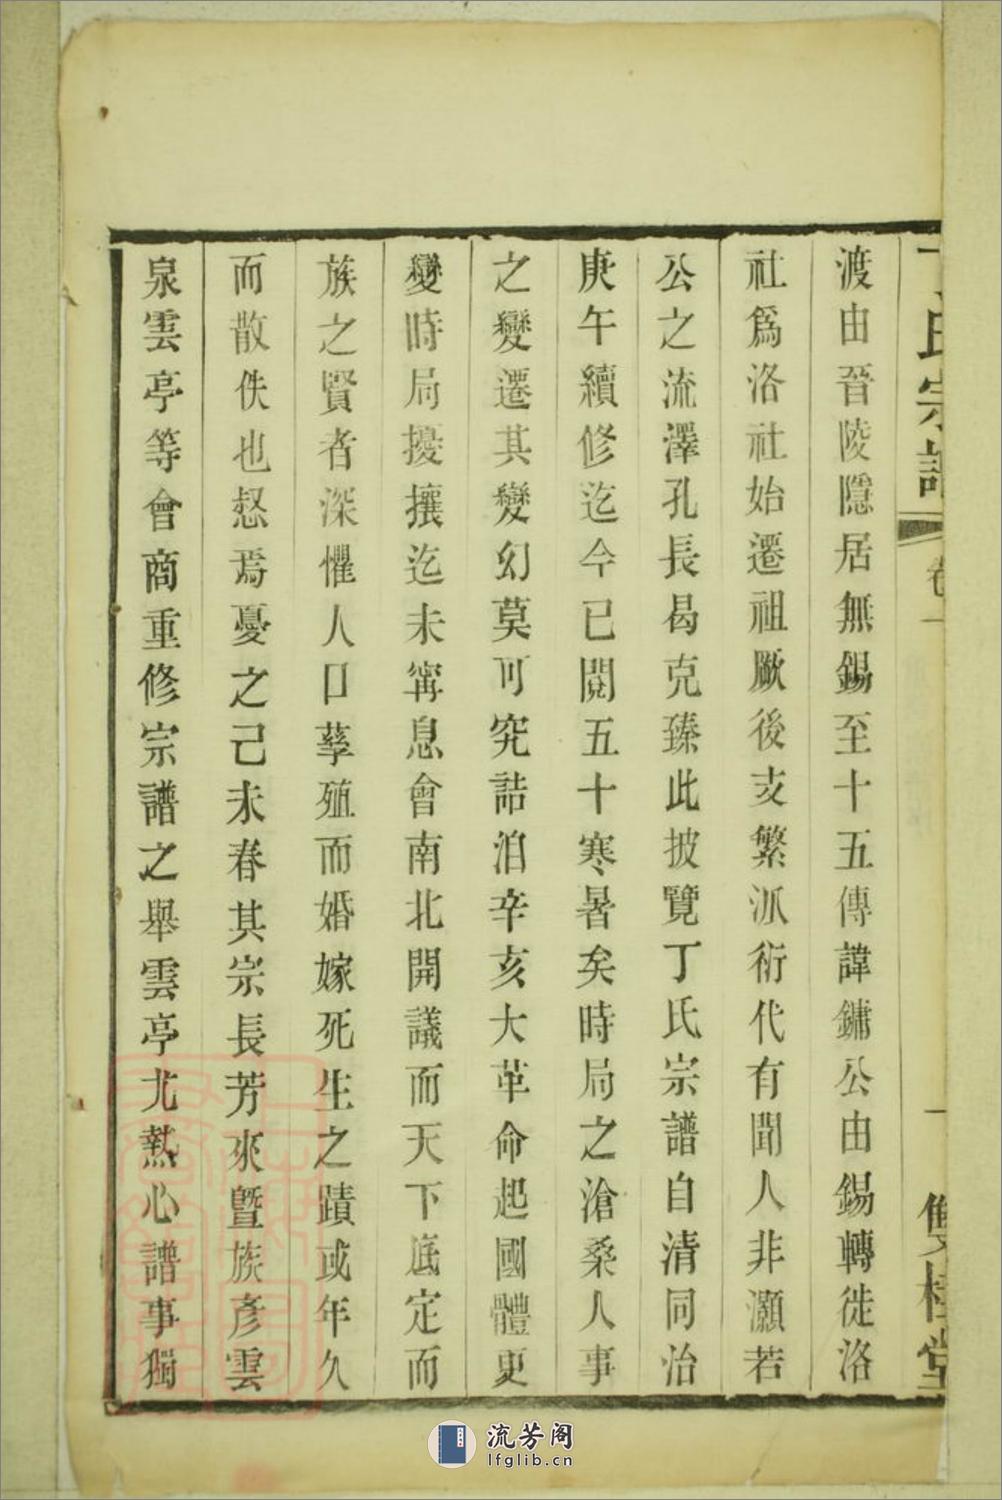 丁氏宗譜 卷一 一 雙桂堂
渡由晉陵隱居無錫至十五傳諱鏞公由錫轉徙洛
社爲洛社始遷祖厥後支繁派衍代有聞人非灝若
公之流澤孔長曷克臻此披覽丁氏宗譜自清同治
庚午續修迄今已閱五十寒暑矣時局之滄桑人事
之變遷其變幻莫可究詰洎辛亥大革命起國體更
變時局擾攘迄未寗息會南北開議而天下底定而
族之賢者深懼人口孳殖而婚嫁死生之蹟或年久
而散佚也惄焉憂之己未春其宗長芳來暨族彥雲
泉雲亭等會商重修宗譜之舉雲亭尤熱心譜事獨
流芳阁
lfglib.cn